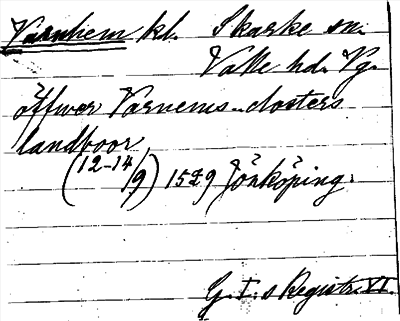 Varnhem kl. Skarke sn.
Valle hd. Vg.
öffwer Varnems closters
landboor
(12-14/9) 1529 Jönköping.
G. I:s Registr. VI.